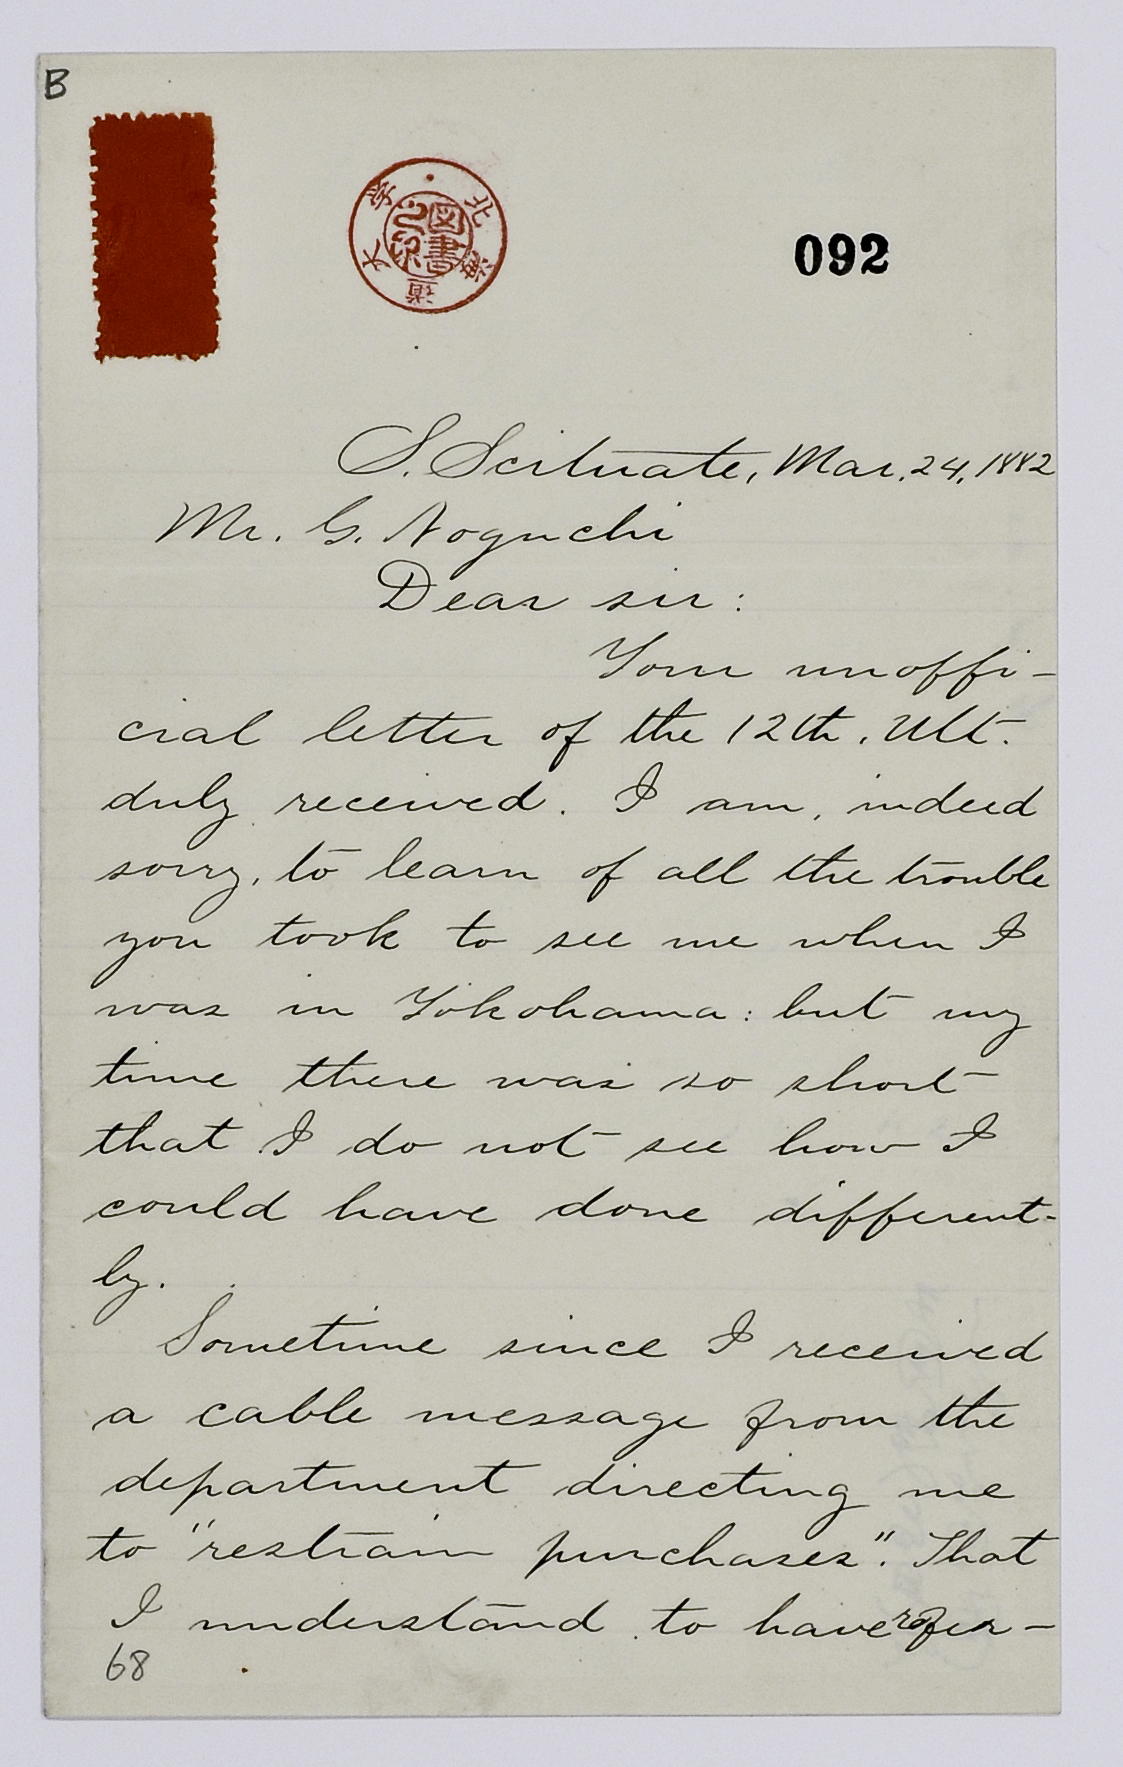 B
北海道帝國大学
図書之印
092
S. Scituate, Mar. 24, 1882
Mr. G. Noguchi
Dear sir:
Your unoffi-
cial letter of the 12th. Ult.
duly received. I am, indeed
sorry, to learn of all the trouble
you took to see me when I
was in Yokohama: but my
time there was so short
that I do not see how I
could have done different-
ly.
Sometime since I received
a cable message from the
department directing me
to "restrain purchases". That
I understand to have refer-
68